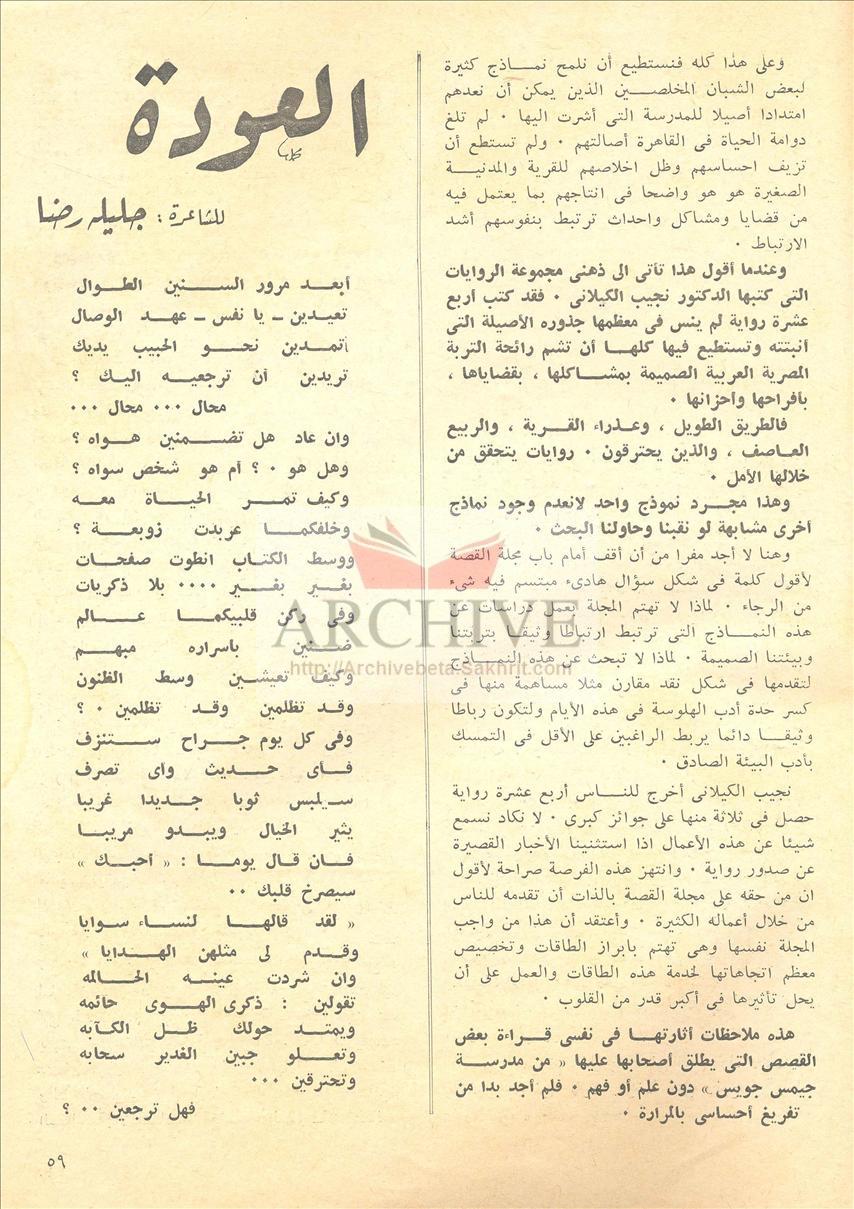 وعلى هذا كله فنستطيع أن نلمح نماذج كثيرة
لبعض الشبان المخلصين الذين يمكن أن نعدهم
امتدادا أصيلا للمدرسة التى أشرت اليها ٠ لم تلغ
دوامة الحياة فى القاهرة أصالتهم ٠ ولم تستطع أن
تزيف احساسهم وظل اخلاصهم للقرية والمدنية
الصغيرة هو هو واضحا فى انتاجهم بما يعتمل فيه
من قضايا ومشاكل واحداث ترتبط بنفوسهم أشد
الارتباط ٠
وعندما أقول هذا تأتى الى ذهنى مجموعة الروايات
التى كتبها الدكتور نجيب الكيلانى ٠ فقد كتب أربع
عشرة رواية لم ينس فى معظمها جذوره الأصيلة التى
أنبتته وتستطيع فيها كلها أن تشم رائحة التربة
المصرية العربية الصميمة بمشاكلها ، بقضاياها ،
بأفراحها وأحزانها ٠
فالطريق الطويل ، وعذراء القرية ، والربيع
العاصف ، والذين يحترقون ٠ روايات يتحقق من
خلالها الأمل ٠
وهذا مجرد نموذج واحد لانعدم وجود نماذج
أخرى مشابهة لو نقبنا وحاولنا البحث ٠
وهنا لا أجد مفرا من أن أقف أمام باب مجلة القصة
لأقول كلمة فى شكل سؤال هادىء مبتسم فيه شىء
من الرجاء ٠ لماذا لا تهتم المجلة بعمل دراسات عن
هذه النماذج التى ترتبط ارتباطا وثيقا بتربتنا
وبيئتنا الصميمة ٠ لماذا لا تبحث عن هذه النماذج
لتقدمها فى شكل نقد مقارن مثلا مساهمة منها فى
كسر حدة أدب الهلوسة فى هذه الأيام ولتكون رباطا
وثيقا دائما يربط الراغبين على الأقل فى التمسك
بأدب البيئة الصادق ٠
نجيب الكيلانى أخرج للناس أربع عشرة رواية
حصل فى ثلاثة منها على جوائز كبرى ٠ لا نكاد نسمع
شيئا عن هذه الأعمال اذا استثنينا الأخبار القصيرة
عن صدور رواية ٠ وانتهز هذه الفرصة صراحة لأقول
ان من حقه على مجلة القصة بالذات أن تقدمه للناس
من خلال أعماله الكثيرة ٠ وأعتقد أن هذا من واجب
المجلة نفسها وهى تهتم بابراز الطاقات وتخصيص
معظم اتجاهاتها لخدمة هذه الطاقات والعمل على أن
يحل تأثيرها فى أكبر قدر من القلوب ٠
هذه ملاحظات أثارتها فى نفسى قراءة بعض
القصص التى يطلق أصحابها عليها « من مدرسة
جيمس جويس » دون علم أو فهم ٠ فلم أجد بدا من
تفريغ أحساسى بالمرارة ٠
العودة
للشاعرة : جليله رضا
أبعد مرور السنين الطوال
تعيدين ـ يا نفس ـ عهد الوصال
أتمدين نحو الحبيب يديك
تريدين أن ترجعيه اليك ؟
محال ٠٠٠ محال ٠٠٠
وان عاد هل تضمنين هواه ؟
وهل هو ٠ ؟ أم هو شخص سواه ؟
وكيف تمر الحياة معه
وخلفكما عربدت زوبعة ؟
ووسط الكتاب انطوت صفحات
بغير بغير ٠٠٠٠ بلا ذكريات
وفى ركن قلبيكما عالم
ضنين باسراره مبهم
وكيف تعيشين وسط الظنون
وقد تظلمين وقد تظلمين ٠ ؟
وفى كل يوم جراح ستنزف
فأى حديث وأى تصرف
سيلبس ثوبا جديدا غريبا
يثير الخيال ويبدو مريبا
فان قال يوما : « أحبك »
سيصرخ قلبك ٠٠
« لقد قالها لنساء سوايا
وقدم لى مثلهن الهدايا »
وان شردت عينه الحالمه
تقولين : ذكرى الهوى حائمه
ويمتد حولك ظل الكآبه
وتعلو جبين الغدير سحابه
وتحترقين ٠٠٠
فهل ترجعين ٠٠ ؟
ARCHIVE
http://Archivebeta.Sakhrit.com
٥٩